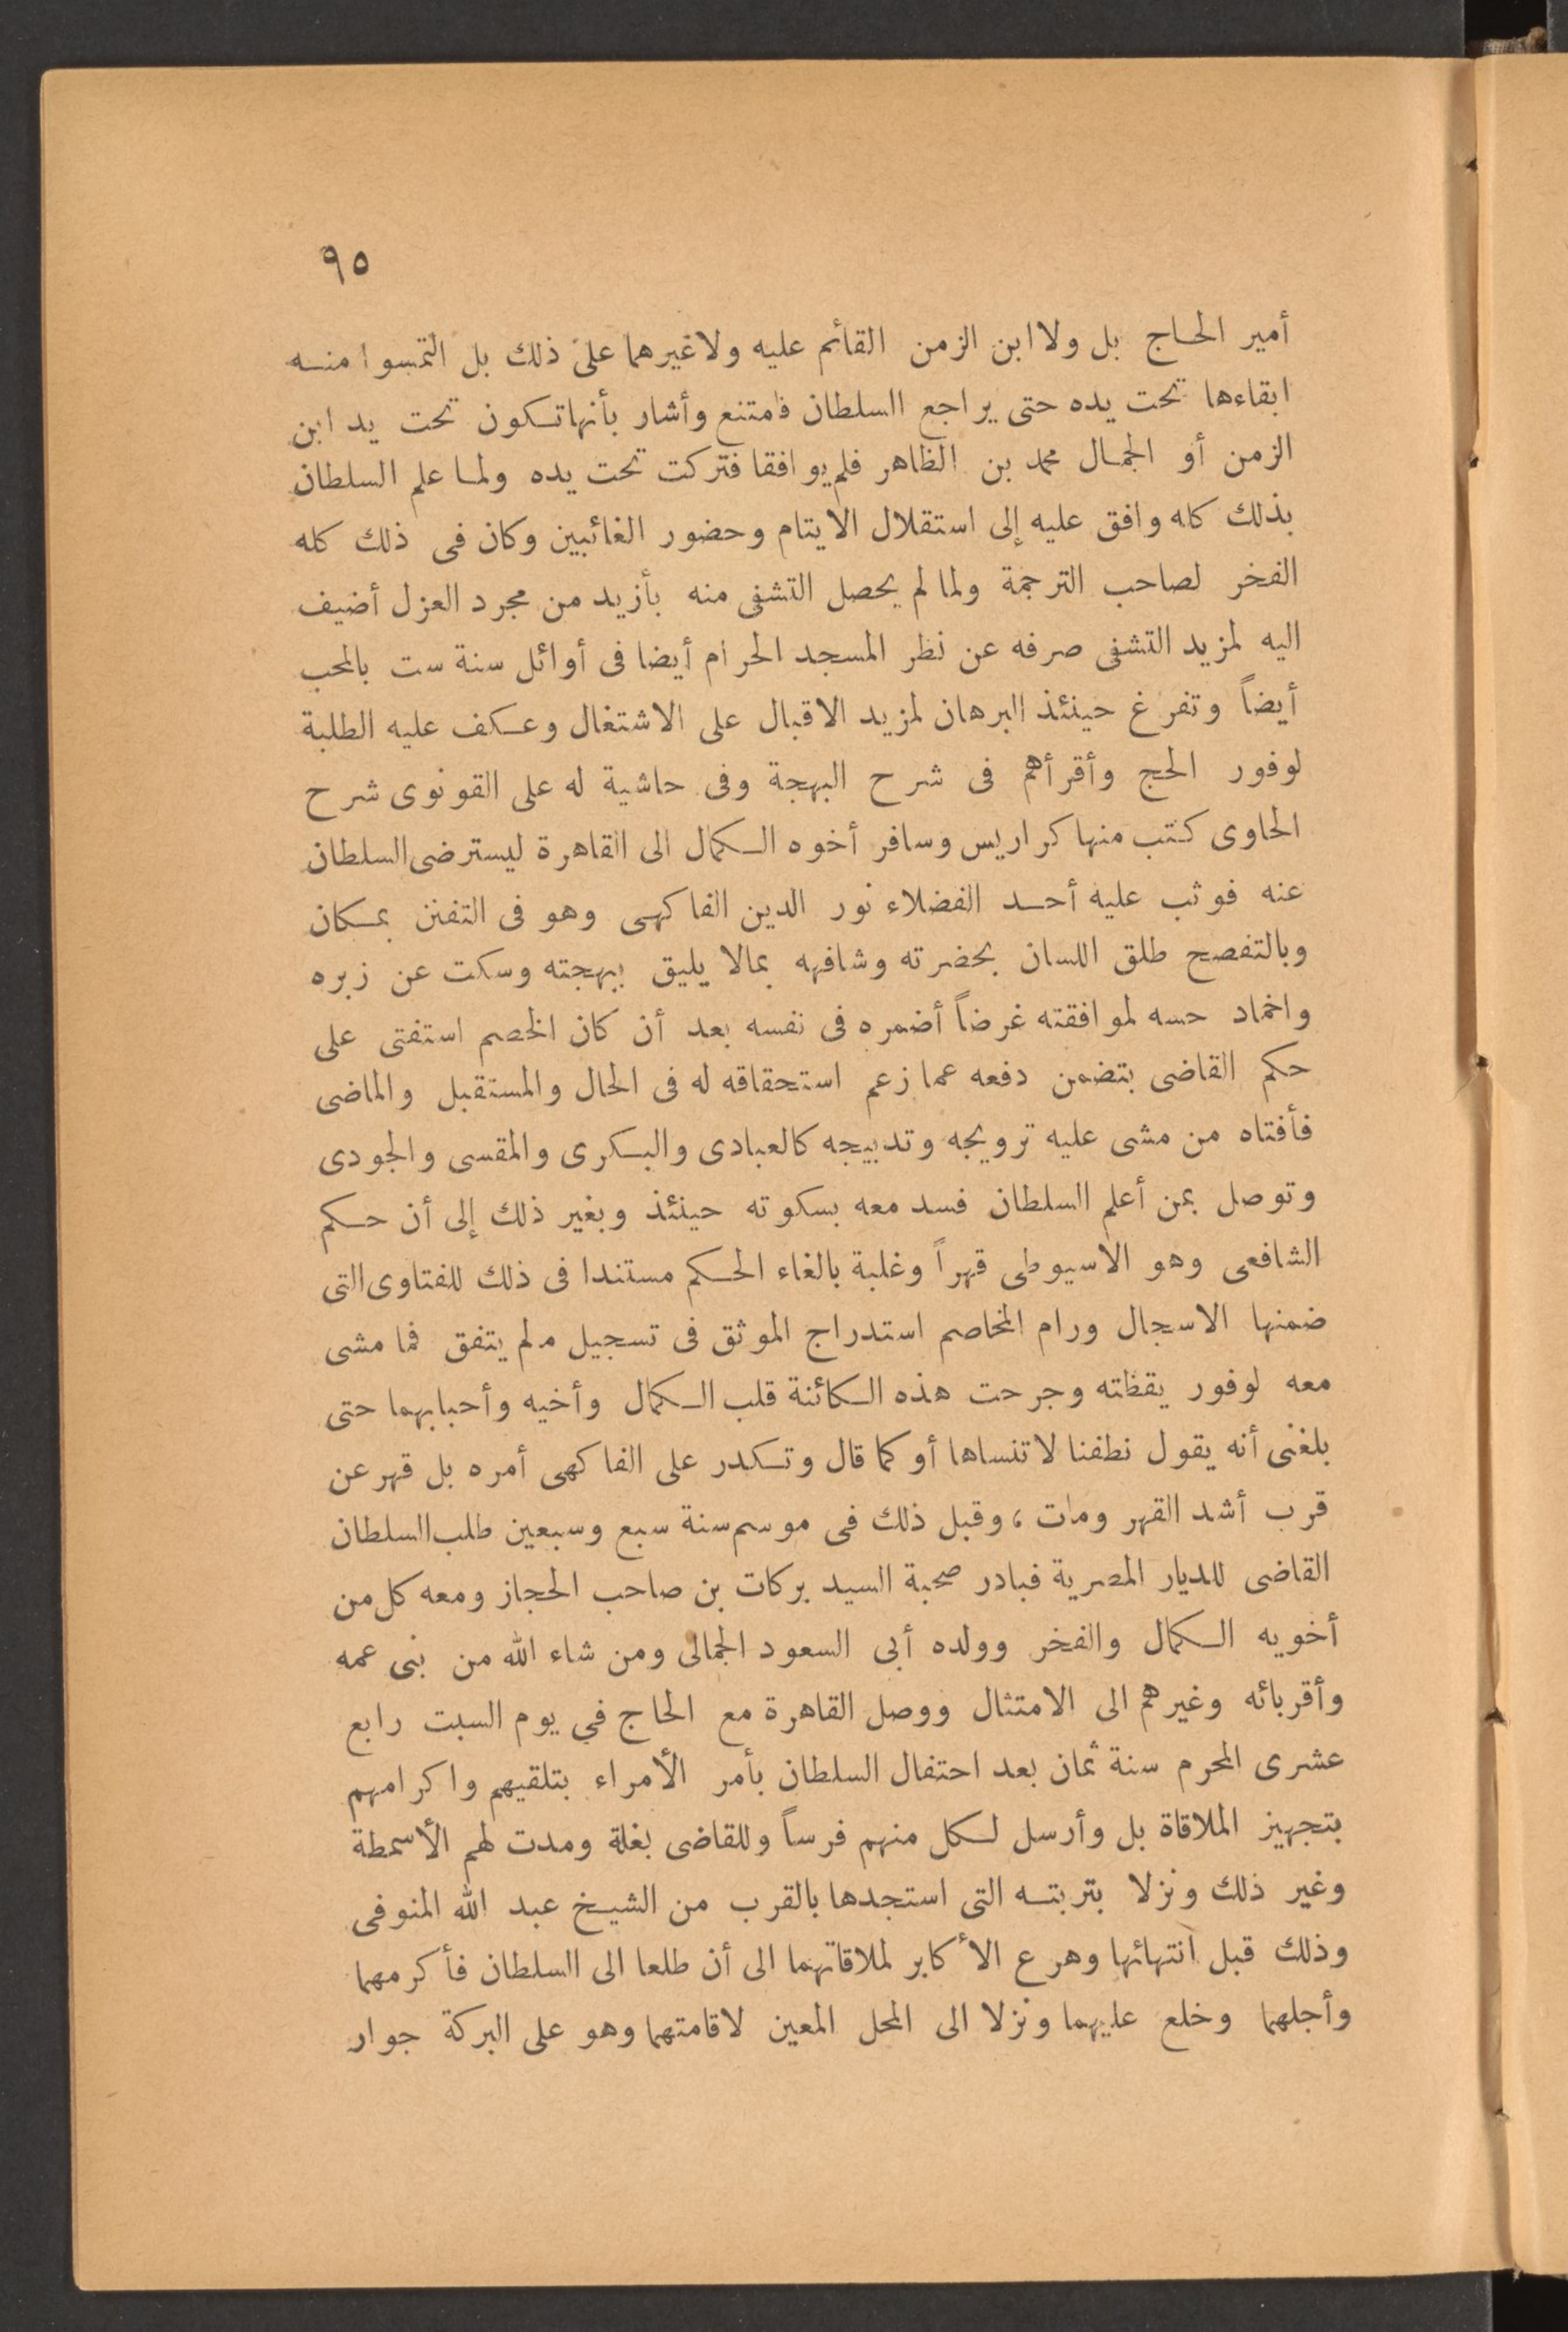 ٩٥
أمير الحاج بل ولا ابن الزمن القائم عليه ولا غيرهما على ذلك بل التمسوا منه
ابقاءها تحت يده حتى يراجع السلطان فامتنع وأشار بأنها تكون تحت يد ابن
الزمن أو الجمال محمد بن الظاهر فلم يوافقا فتركت تحت يده ولما علم السلطان
بذلك كله وافق عليه إلى استقلال الايتام وحضور الغائبين وكان فى ذلك كله
الفخر لصاحب الترجمة ولما لم يحصل التشفى منه بأزيد من مجرد العزل أضيف
اليه لمزيد التشفى صرفه عن نظر المسجد الحرام أيضا فى أوائل سنة ست بالمحب
أيضاً وتفرغ حينئذ البرهان لمزيد الاقبال على الاشتغال وعكف عليه الطلبة
لوفور الحج وأقرأهم فى شرح البهجة وفى حاشية له على القونوى شرح
الحاوى كتب منها كراريس وسافر أخوه الكمال الى القاهرة ليسترضى السلطان
عنه فوثب عليه أحد الفضلاء نور الدين الفاكهى وهو فى التفنن بمكان
وبالتفصح طلق اللسان بحضرته وشافهه بمالا يليق ببهجته وسكت عن زبره
واخماد حسه لموافقته غرضاً أضمره فى نفسه بعد أن كان الخصم استفتى على
حكم القاضى بتضمن دفعه عما زعم استحقاقه له فى الحال والمستقبل والماضى
فأفتاه من مشى عليه ترويجه وتدبيجه كالعبادى والبكرى والمقسى والجودى
وتوصل بمن أعلم السلطان فسد معه بسكوته حينئذ وبغير ذلك إلى أن حكم
الشافعى وهو الاسيوطى قهراً وغلبة بالغاء الحكم مستندا فى ذلك للفتاوى التى
ضمنها الاسجال ورام المخاصم استدراج الموثق فى تسجيل مالم يتفق فما مشى
معه لوفور يقظته وجرحت هذه الكائنة قلب الكمال وأخيه وأحبابهما حتى
بلغنى أنه يقول نطفنا لا تنساها أو كما قال وتكدر على الفاكهى أمره بل قهر عن
قرب أشد القهر ومات، وقبل ذلك فى موسم سنة سبع وسبعين طلب السلطان
القاضى للديار المصرية فبادر صحبة السيد بركات بن صاحب الحجاز ومعه كل من
أخويه الكمال والفخر وولده أبى السعود الجمالى ومن شاء الله من بنى عمه
وأقربائه وغيرهم الى الامتثال ووصل القاهرة مع الحاج في يوم السبت رابع
عشرى المحرم سنة ثمان بعد احتفال السلطان بأمر الأمراء بتلقيهم واكرامهم
بتجهيز الملاقاة بل وأرسل لكل منهم فرساً وللقاضى بغلة ومدت لهم الأسمطة
وغير ذلك ونزلا بتربته التى استجدها بالقرب من الشيخ عبد الله المنوفى
وذلك قبل انتهائها وهرع الأكابر لملاقاتهما الى أن طلعا الى السلطان فأكرمهما
وأجلهما وخلع عليهما ونزلا الى المحل المعين لاقامتهما وهو على البركة جوار